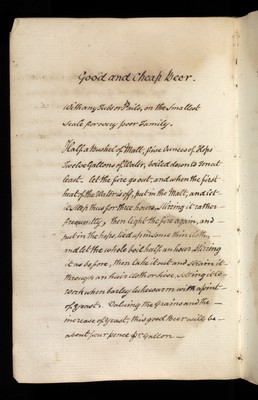 Good and Cheap Beer.
With any Tubs or Pails, on the Smallest
Scale for every poor Family.
Half a Bushel of Malt, five Ounces of Hops
Twelve Gallons of Water, boiled down to
least. let the fire go out, and when the first
heat of the Water is off, put in the Malt, and let
it Steep thus for three hours, Stirring it rather
frequently, then light the fire again, and
put in the hops, tied up in some thin Cloth,
and let the whole boil half an hour Stirring
it as before, then take it out and strain it
through an hair Cloth or Sieve, setting it to
work when barley lukewarm with a pint
of yeast. Valuing the Grains and the
increase of Yeast, this good Beer will be
about four pence pr. Gallon